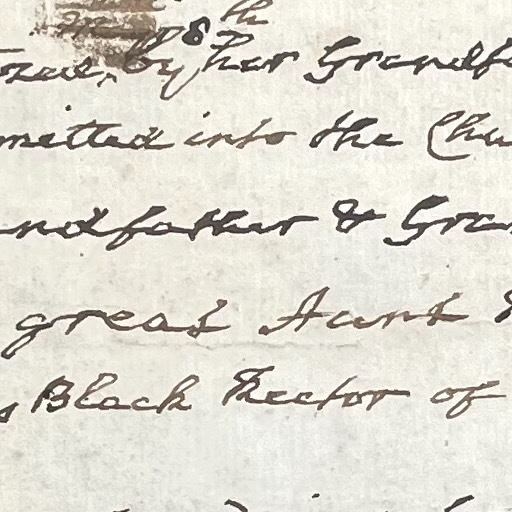 8th
tized, by her Grandf
mitted into the Chu
ndfather & Gran
great Aunt &
s Black Rector of